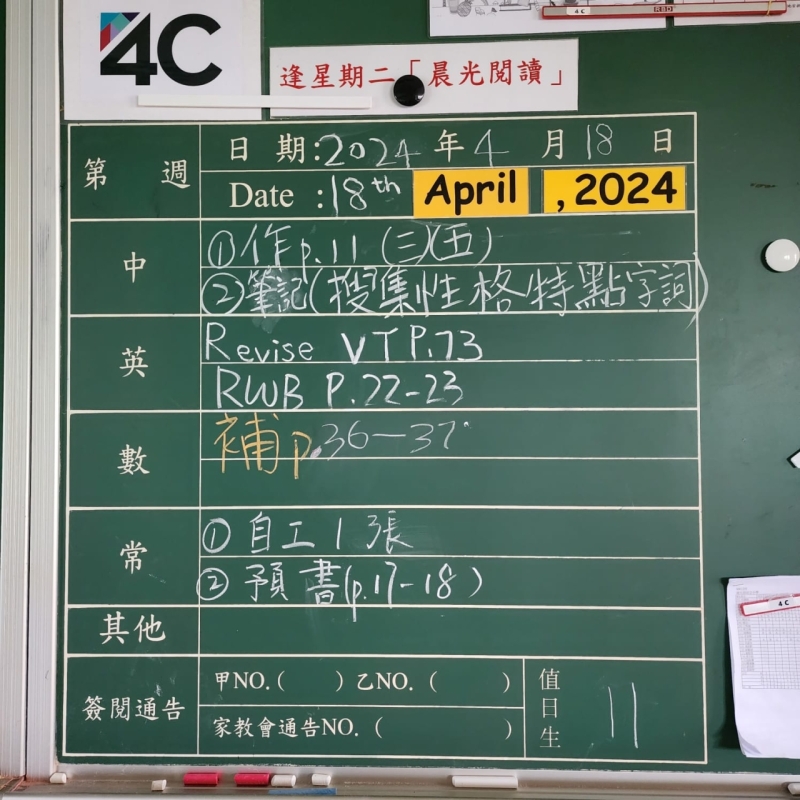 4C
逢星期二「晨光閱讀」
第 週
日 期:2024 年 4 月 18 日
Date :18th April , 2024
中
①作p.11 (三)(五)
②筆記(搜集性格特點字詞)
英
Revise VT P.73
RWB P.22-23
數
補p.36-37
常
①自工1張
②預書(p.17-18)
其他
簽閱通告
甲NO.( ) 乙NO. ( )
家教會通告NO. ( )
值日生
11
4C
4C